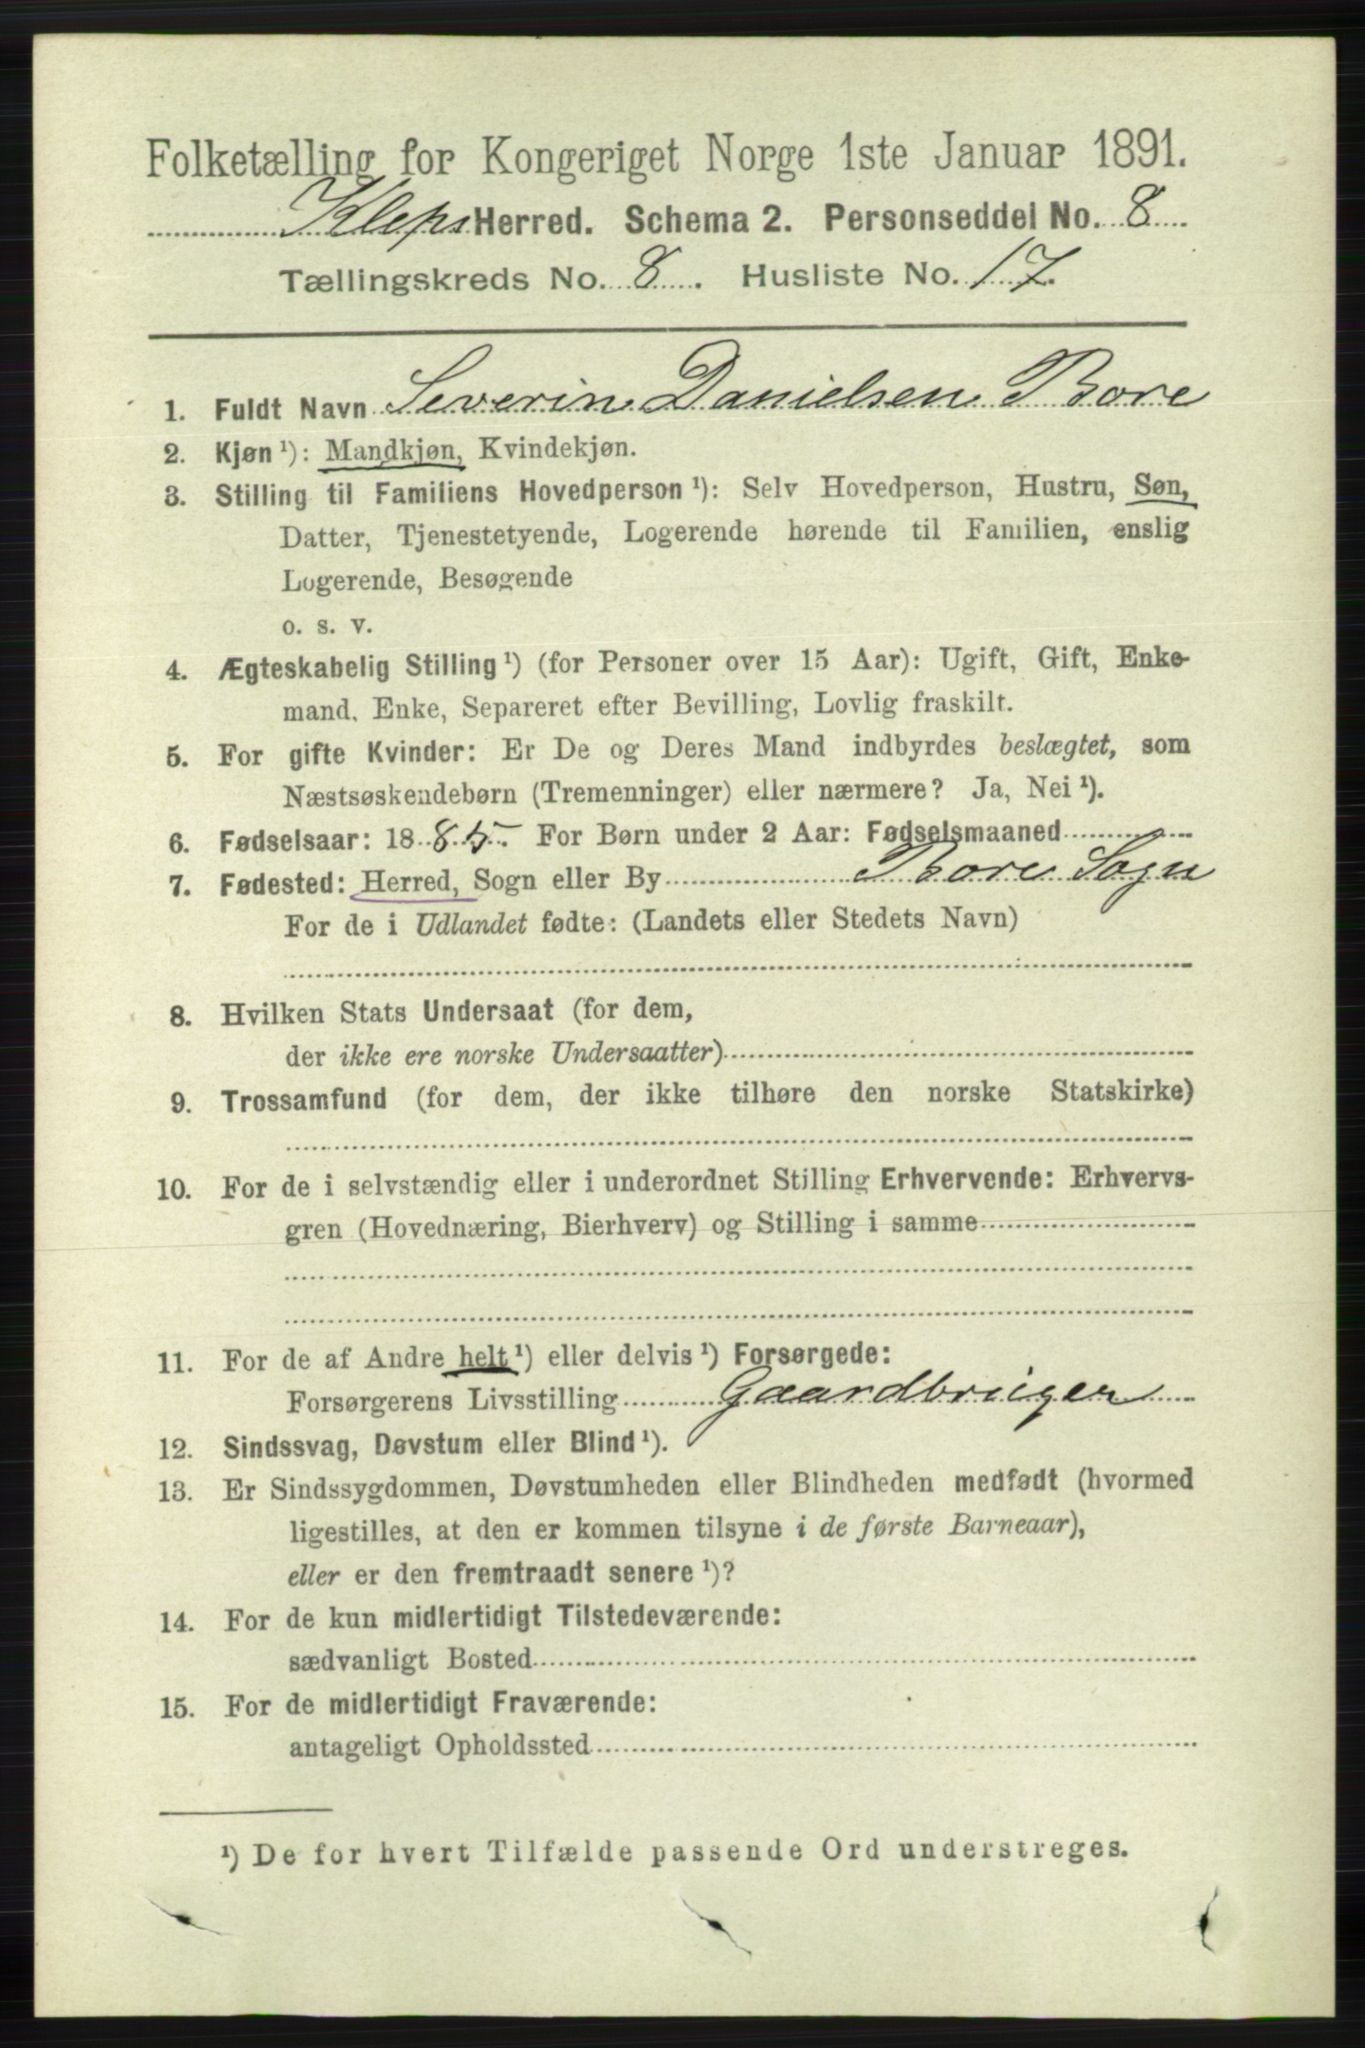 Folketælling for Kongeriget Norge 1ste Januar 1891.
Kleps Herred. Schema 2. Personseddel No. 8
Tællingskreds No. 8. Husliste No. 17.
1. Fuldt Navn Severin Danielsen Bore
2. Kjøn ¹): Mandkjøn, Kvindekjøn.
3. Stilling til Familiens Hovedperson ¹): Selv Hovedperson, Hustru, Søn,
Datter, Tjenestetyende, Logerende hørende til Familien, enslig
Logerende, Besøgende
o. s. v.
4. Ægteskabelig Stilling ¹) (for Personer over 15 Aar): Ugift, Gift, Enke-
mand, Enke, Separeret efter Bevilling, Lovlig fraskilt.
5. For gifte Kvinder: Er De og Deres Mand indbyrdes beslægtet, som
Næstsøskendebørn (Tremenninger) eller nærmere? Ja, Nei ¹).
6. Fødselsaar: 1885. For Børn under 2 Aar: Fødselsmaaned
7. Fødested: Herred, Sogn eller By Bore Sogn
For de i Udlandet fødte: (Landets eller Stedets Navn)
8. Hvilken Stats Undersaat (for dem,
der ikke ere norske Undersaatter)
9. Trossamfund (for dem, der ikke tilhøre den norske Statskirke)
10. For de i selvstændig eller i underordnet Stilling Erhvervende: Erhvervs-
gren (Hovednæring, Bierhverv) og Stilling i samme
11. For de af Andre helt ¹) eller delvis ¹) Forsørgede:
Forsørgerens Livsstilling Gaardbruger
12. Sindssvag, Døvstum eller Blind ¹).
13. Er Sindssygdommen, Døvstumheden eller Blindheden medfødt (hvormed
ligestilles, at den er kommen tilsyne i de første Barneaar),
eller er den fremtraadt senere ¹)?
14. For de kun midlertidigt Tilstedeværende:
sædvanligt Bosted
15. For de midlertidigt Fraværende:
antageligt Opholdssted
¹) De for hvert Tilfælde passende Ord understreges.